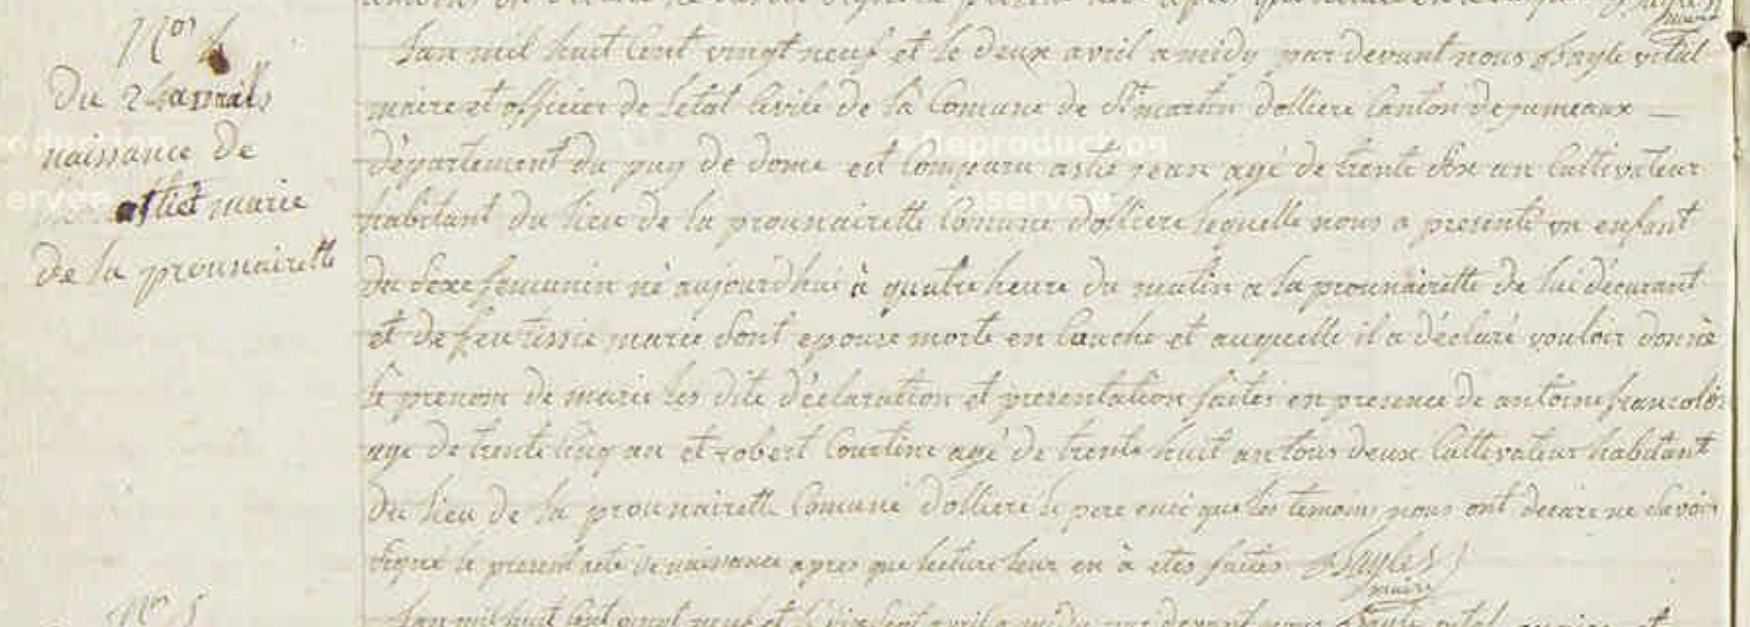 N° 4
Du 2 avril
naissance de
astier marie
de la prounairette
Lan mil huit Cent vingt neuf et le deux avril a midy par devant nous Sayle vital
maire et officier de letat Civile de la Comune de St martin dolliere Canton de jumeaux
département du puy de dome est Comparu astie jean agé de trente six an Cultivateur
habitant du lieu de la prounairette Comune dolliere lequelle nous a presenté un enfant
du sexe femunin né aujourdhui à quatre heure du matin a la prounairette de lui décarant
et de feu tissie marie sont epouse morte en Couche et auquelle il a déclaré vouloir donné
le prenom de marie les dite déclaration et presentation faites en presence de antoine francolon
age de trente cinq an et robert Courtine agé de trente huit an tous deux Cultivateur habitant
du lieu de la prounairette Comune dolliere le pere ensi que les temoins nous ont decare ne savoir
signé le present acte de naissance apres que lecture leur en à etes faites Sayle
maire
N° 5
Lan mil huit Cent vingt neuf et le avril a midy par devant nous Sayle vital maire et